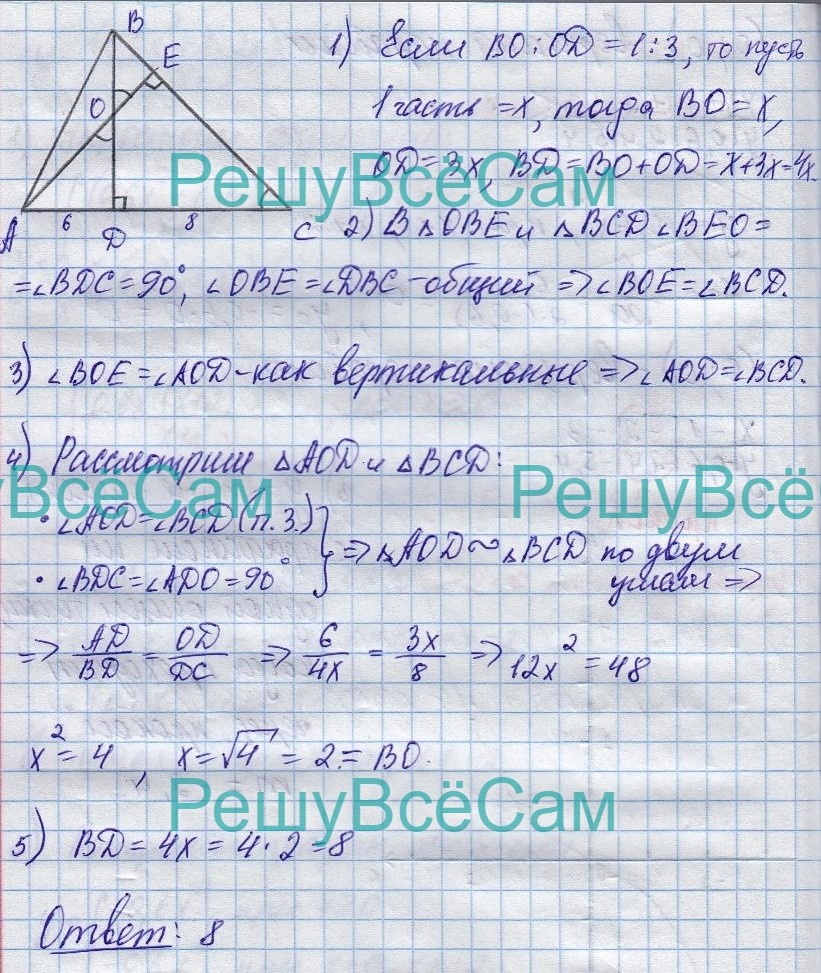 B
E
O
A
6
D
8
C
1) Если BO:OD=1:3, то пусть
1 часть =x, тогда BO=x,
OD=3x, BD=BO+OD=x+3x=4x.
РешуВсёСам
2) В △OBE и △BCD ∠BEO=
=∠BDC=90°, ∠OBE=∠DBC-общий => ∠BOE=∠BCD.
3) ∠BOE=∠AOD-как вертикальные => ∠AOD=∠BCD.
4) Рассмотрим △AOD и △BCD:
РешуВсёСам РешуВсёСам
• ∠AOD=∠BCD (п.3.)
• ∠BDC=∠ADO=90°
} => △AOD ~ △BCD по двум
углам =>
=> AD/BD = OD/DC => 6/4x = 3x/8 => 12x²=48
x²=4, x=√4=2=BO.
РешуВсёСам
5) BD=4x=4·2=8
Ответ: 8